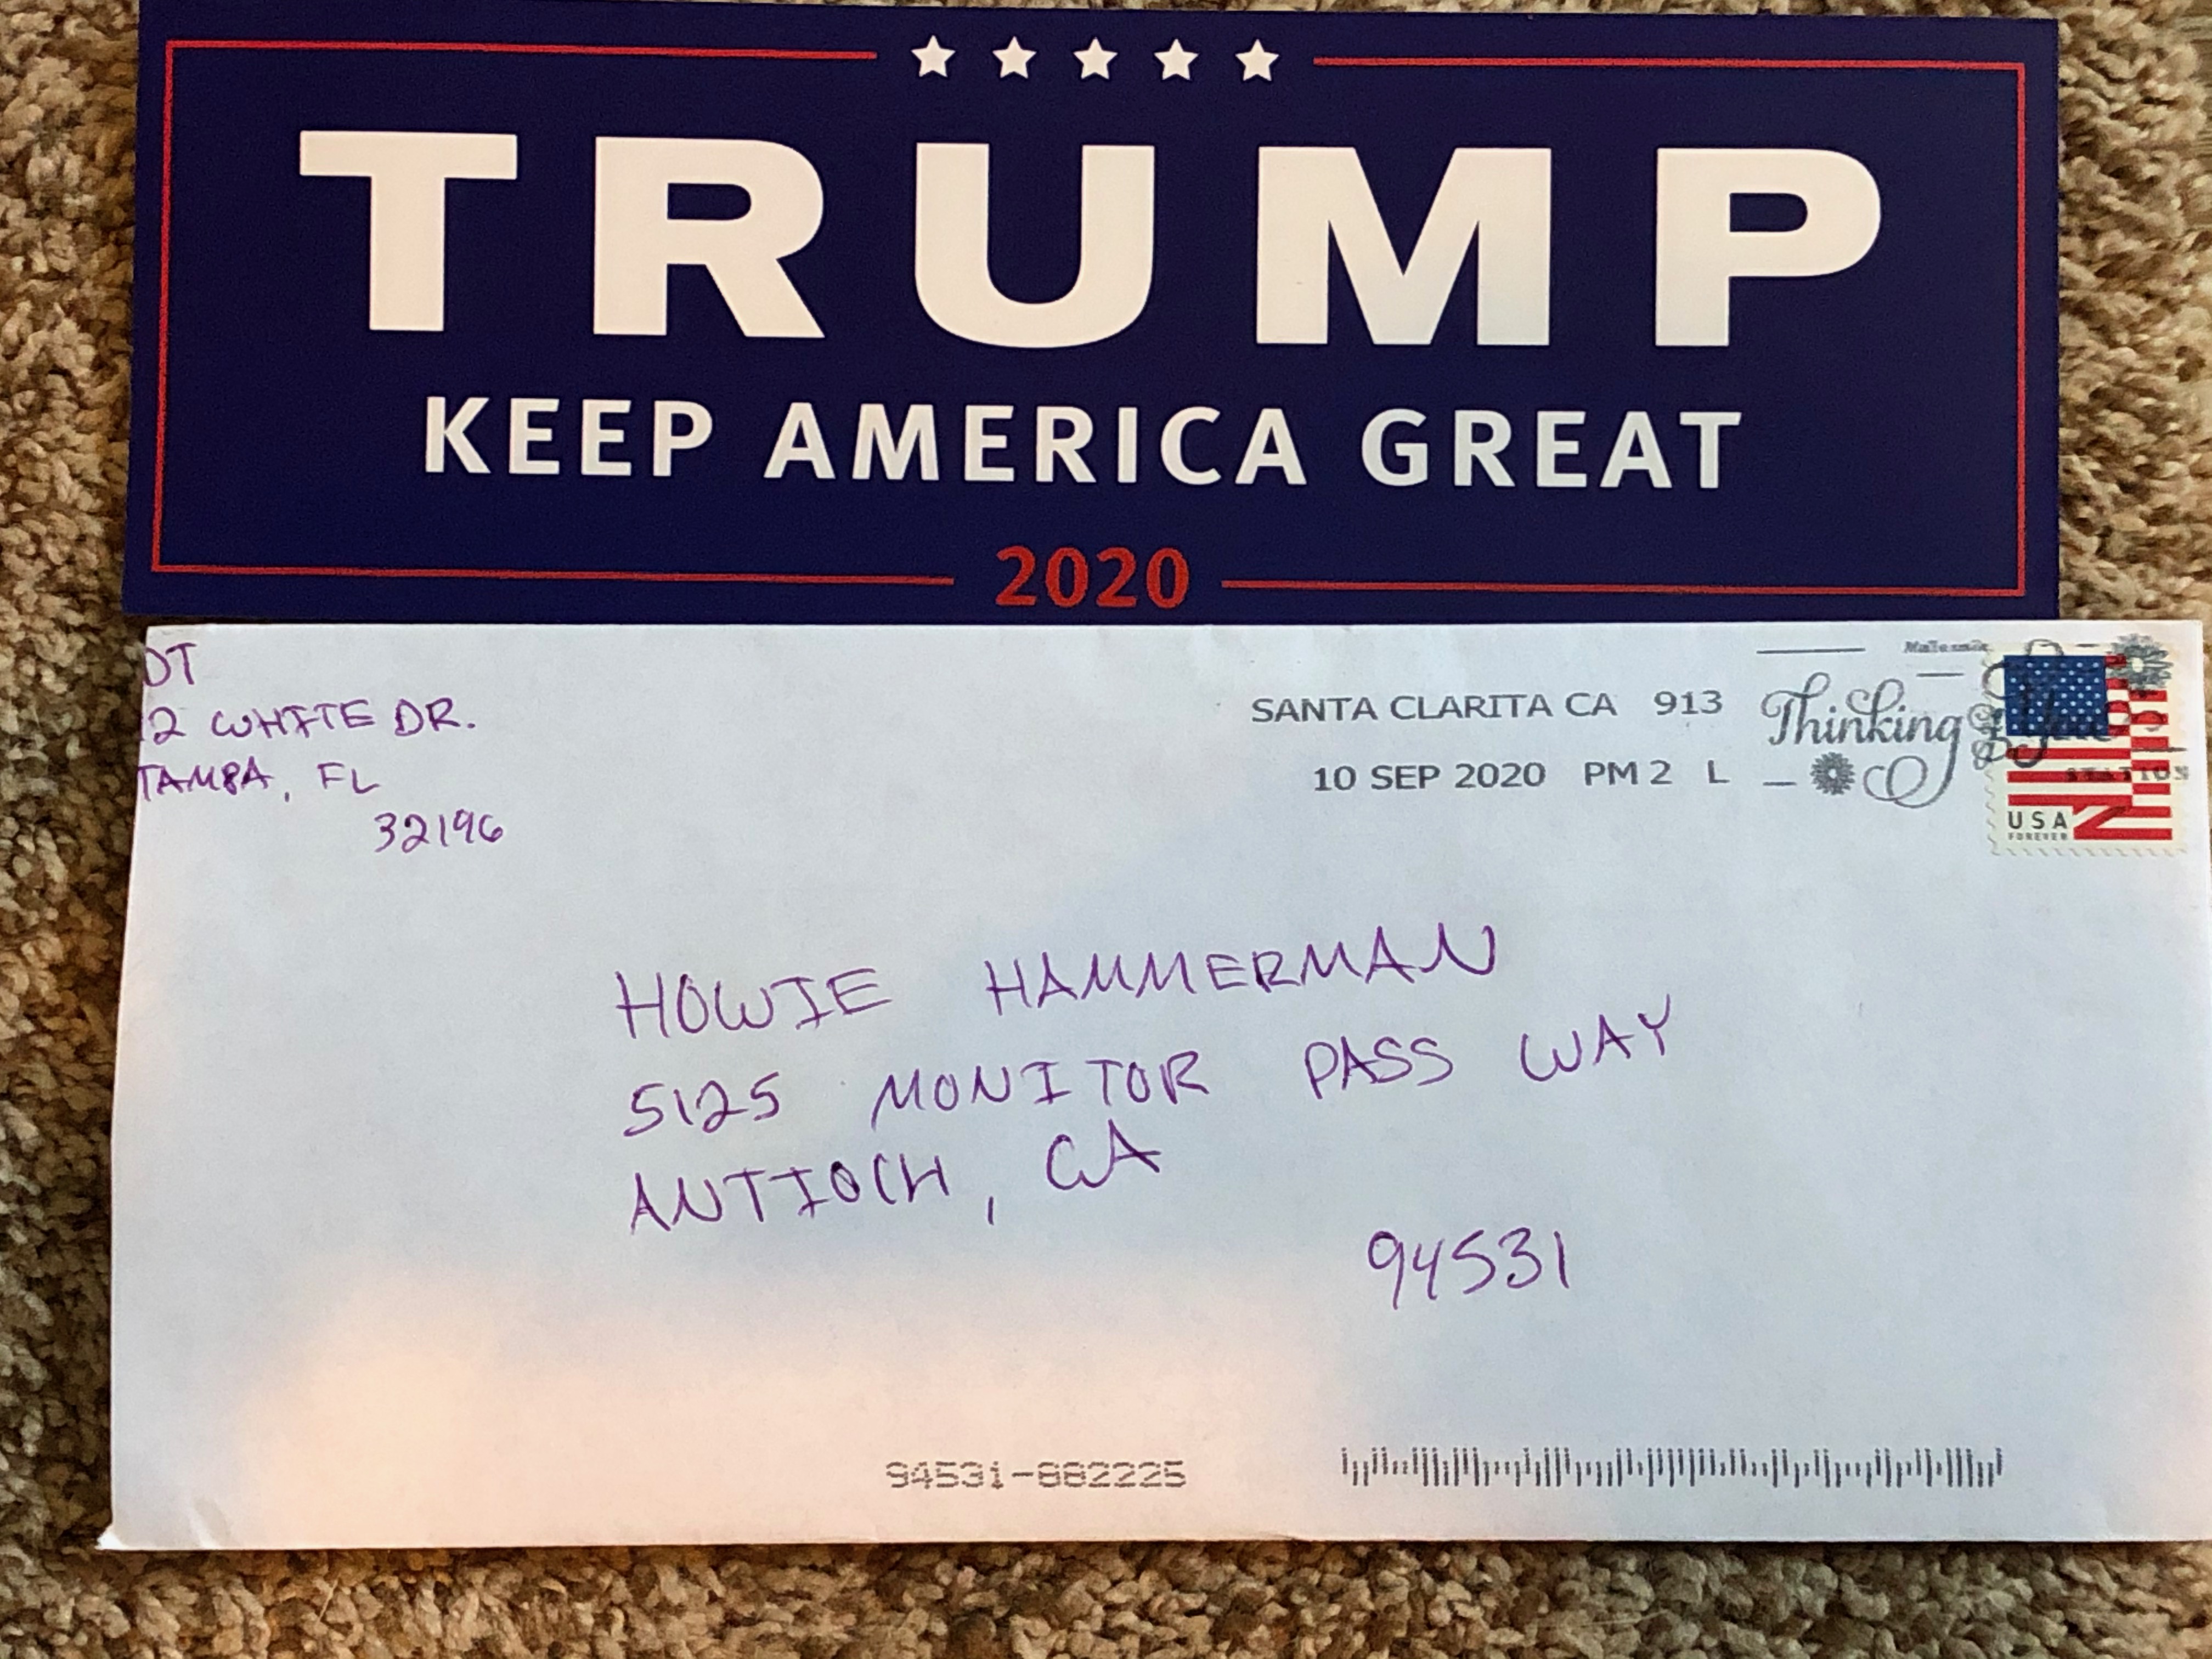 TRUMP
KEEP AMERICA GREAT
2020
DT
12 WHITE DR.
TAMPA, FL
32196
SANTA CLARITA CA 913
10 SEP 2020 PM 2 L
Thinking of You
STATION
USA
FOREVER
HOWIE HAMMERMAN
5125 MONITOR PASS WAY
ANTIOCH, CA
94531
94531-882225